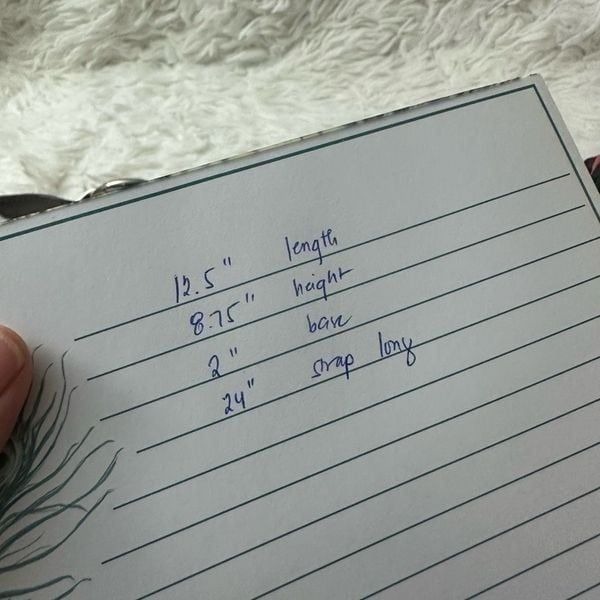 12.5" length
8.75" height
2" base
24" strap long